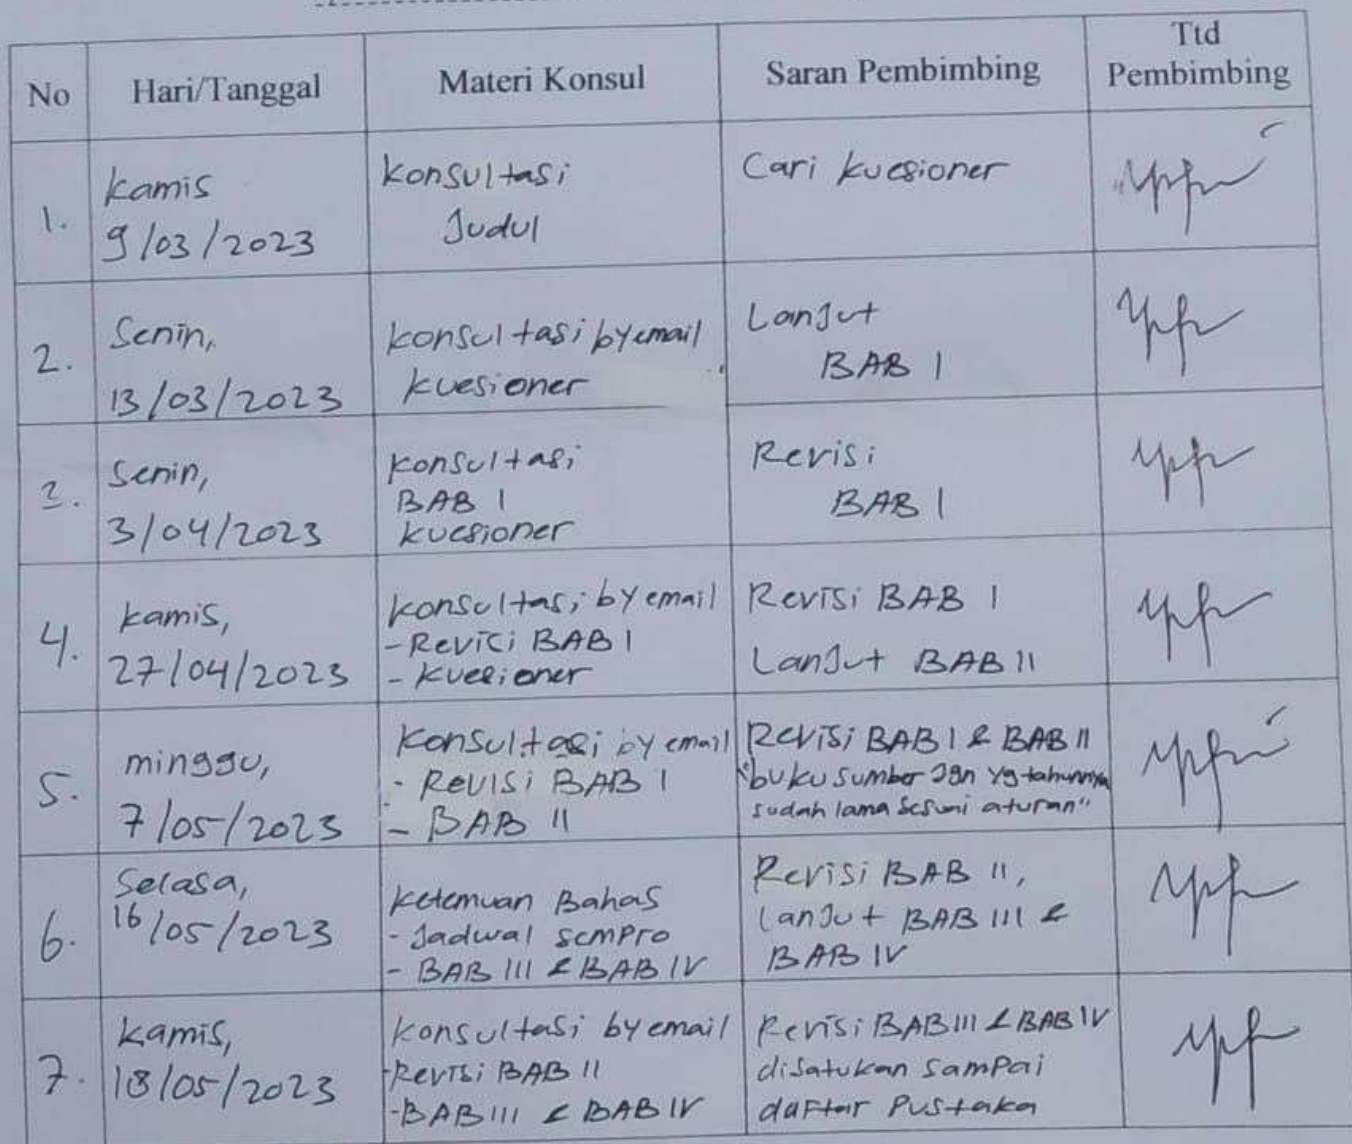 No Hari/Tanggal Materi Konsul Saran Pembimbing Ttd Pembimbing
1. Kamis 9/03/2023
Konsultasi
Judul
Cari kuesioner
2. Senin,
13/03/2023
Konsultasi by email
kuesioner
Lanjut
BAB I
3. Senin,
3/04/2023
Konsultasi
BAB I
kuesioner
Revisi
BAB I
4. Kamis,
27/04/2023
Konsultasi by email
- Revisi BAB I
- Kuesioner
Revisi BAB I
Lanjut BAB II
5. minggu,
7/05/2023
Konsultasi by email
- Revisi BAB I
- BAB II
Revisi BAB I & BAB II
"buku sumber jgn yg tahunnya
sudah lama sesuai aturan"
6. Selasa,
16/05/2023
Ketemuan Bahas
- Jadwal sempro
- BAB III & BAB IV
Revisi BAB II,
Lanjut BAB III &
BAB IV
7. Kamis,
18/05/2023
Konsultasi by email
- Revisi BAB II
- BAB III & BAB IV
Revisi BAB III & BAB IV
disatukan sampai
daftar Pustaka